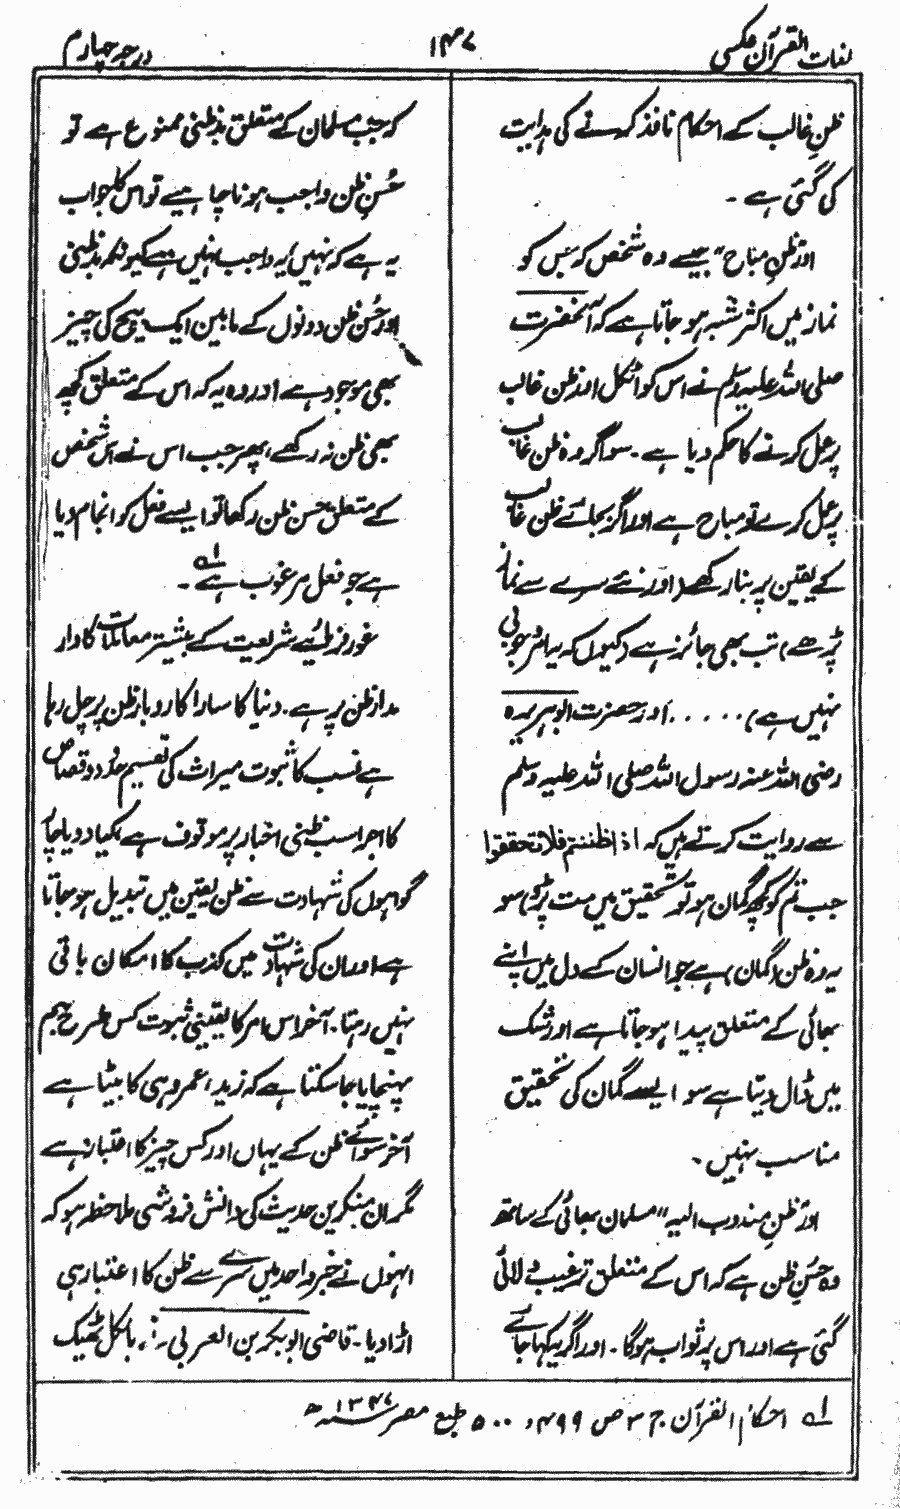 لغات القرآن عکسی
۱۴۷
درجہ چہارم
ظنِ غالب کے احکام نافذ کرنے کی ہدایت
کی گئی ہے۔
اور ظنِ مباح" جیسے وہ شخص کہ جس کو
نماز میں اکثر شبہ ہو جاتا ہے کہ آنحضرت
صلی اللہ علیہ وسلم نے اس کو اٹکل اور ظن غالب
پر عمل کرنے کا حکم دیا ہے۔ سو اگر وہ ظن غالب
پر عمل کرے تو مباح ہے اور اگر بجائے ظن غالب
کے یقین پر بنا رکھے (اور نئے سرے سے نماز
پڑھے) تب بھی جائز ہے (کیوں کہ یہ امر وجوبی
نہیں ہے) ..... اور حضرت ابوہریرہ
رضی اللہ عنہ رسول اللہ صلی اللہ علیہ وسلم
سے روایت کرتے ہیں کہ اذا ظننتم فلا تحققوا
جب تم کو کچھ گمان ہو تو تحقیق میں مت پڑو) سو
یہ وہ ظن (گمان) ہے جو انسان کے دل میں اپنے
بھائی کے متعلق پیدا ہو جاتا ہے اور شک
میں ڈال دیتا ہے سو ایسے گمان کی تحقیق
مناسب نہیں۔
اور ظنِ مندوب الیہ" مسلمان بھائی کے ساتھ
وہ حسنِ ظن ہے کہ اس کے متعلق ترغیب دلائی
گئی ہے اور اس پر ثواب ہوگا۔ اور اگر یہ کہا جائے
کہ جب مسلمان کے متعلق بدظنی ممنوع ہے تو
حُسنِ ظن واجب ہونا چاہیے تو اس کا جواب
یہ ہے کہ نہیں یہ واجب نہیں ہے کیونکہ بدظنی
اور حُسنِ ظن دونوں کے مابین ایک بیچ کی چیز
بھی موجود ہے اور وہ یہ کہ اس کے متعلق کچھ
بھی ظن نہ رکھے، پھر جب اس نے اس شخص
کے متعلق حسن ظن رکھا تو ایسے فعل کو انجام دیا
ہے جو فعل مرغوب ہے۔ لہ
غور فرمائیے شریعت کے بیشتر معاملات کا دار
مدار ظن پر ہے۔ دنیا کا سارا کاروبار ظن پر چل رہا
ہے نسب کا ثبوت میراث کی تقسیم حدود و قصاص
کا اجرا سب ظنی اخبار پر موقوف ہے، کیا دو یا چار
گواہوں کی شہادت سے ظن یقین میں تبدیل ہو جاتا
ہے اور ان کی شہادت میں کذب کا امکان باقی
نہیں رہتا۔ آخر اس امر کا یقینی ثبوت کس طرح بہم
پہنچایا جا سکتا ہے کہ زید، عمرو ہی کا بیٹا ہے
آخر سوائے ظن کے یہاں اور کس چیز کا اعتبار ہے
مگر ان منکرین حدیث کی دانش فروشی ملاحظہ ہو کہ
انہوں نے خبر واحد میں سرے سے ظن کا اعتبار ہی
اڑا دیا۔ قاضی ابوبکر بن العربی نے بالکل ٹھیک
لہ احکام القرآن ج ۳ ص ۴۹۹، ۵۰۰ طبع مصر سنہ ۱۳۴۷ھ